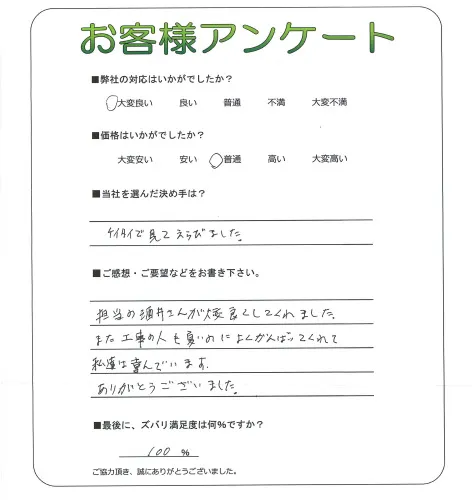 お客様アンケート
■弊社の対応はいかがでしたか？
大変良い 良い 普通 不満 大変不満
■価格はいかがでしたか？
大変安い 安い 普通 高い 大変高い
■当社を選んだ決め手は？
ケイタイで見てえらびました。
■ご感想・ご要望などをお書き下さい。
担当の酒井さんが大変良くしてくれました。
また工事の人も暑いのによくがんばってくれて
私達は喜んでいます。
ありがとうございました。
■最後に、ズバリ満足度は何%ですか？
100 %
ご協力頂き、誠にありがとうございました。